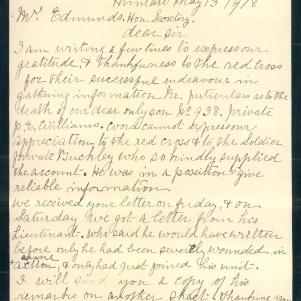 May 13 1918
Mr. Edmunds, Hon. Secretary.
dear Sir
I am writing a few lines to express our
gratitude, & thankfulness to the red Cross
for their successful endeavour in
gathering information Re. particulars as to the
death of our dear only son No 938. Private
Williams. words cannot express our
appreciation to the red cross & to the Soldier
private Buckley who so kindly supplied
the account. He was in a position to give
reliable information.
we received your letter on friday, & on
Saturday we got a letter from his
Lieutenant. who said he would have written
before only he had been severely wounded in
action, & only had just joined his unit.
I will send you a copy of his
remarks on another sheet